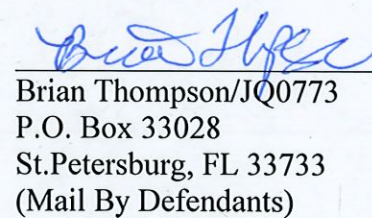 Brian Thompson/JQ0773
P.O. Box 33028
St.Petersburg, FL 33733
(Mail By Defendants)